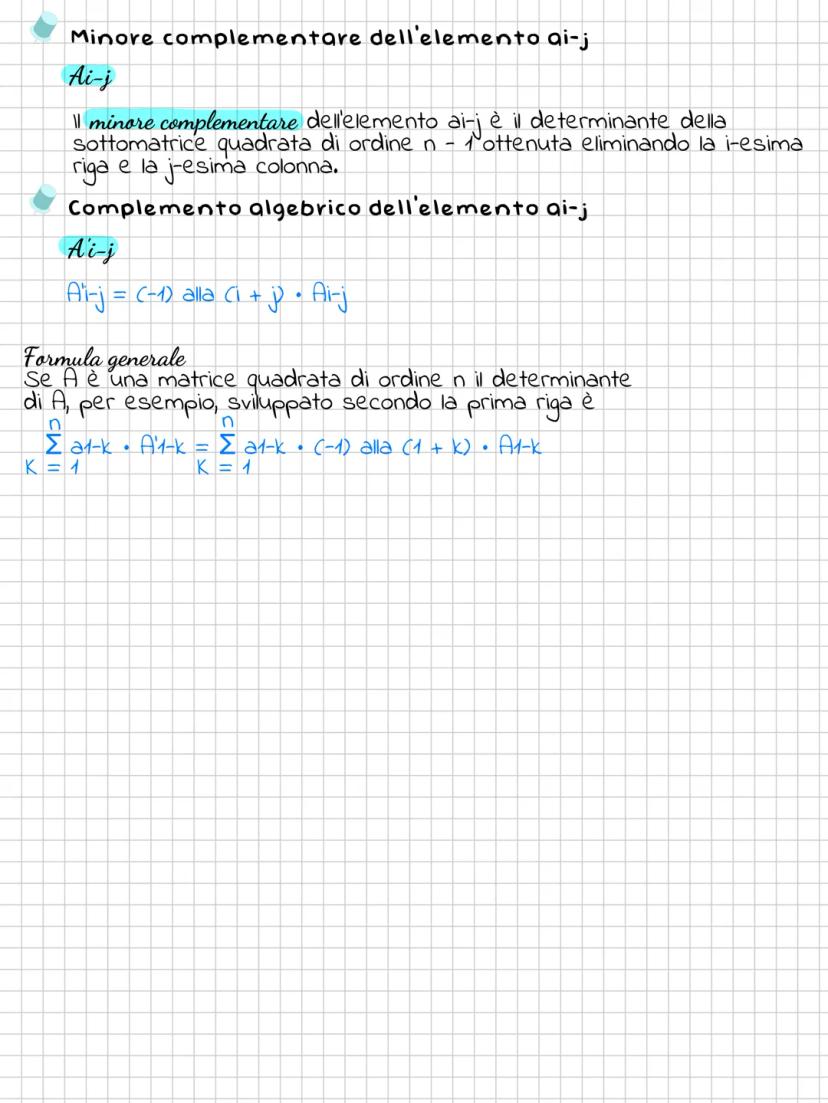 Minore complementare dell'elemento ai-j
Ai-j
Il minore complementare dell'elemento ai-j è il determinante della
sottomatrice quadrata di ordine n - 1 ottenuta eliminando la i-esima
riga e la j-esima colonna.
Complemento algebrico dell'elemento ai-j
A'i-j
A'i-j = (-1) alla (i + j) • Ai-j
Formula generale
Se A è una matrice quadrata di ordine n il determinante
di A, per esempio, sviluppato secondo la prima riga è
n n
Σ a1-k • A'1-k = Σ a1-k • (-1) alla (1 + k) • A1-k
K = 1 K = 1